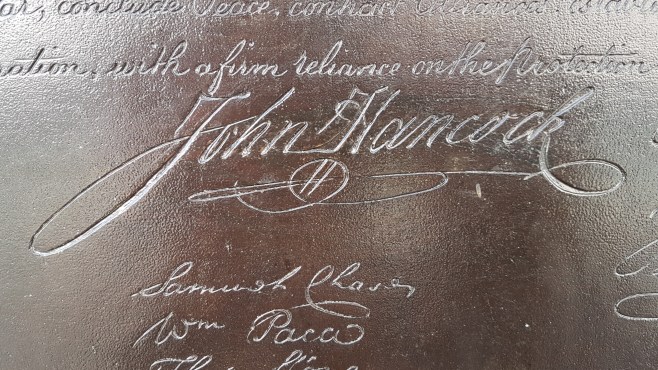 conclude Peace, contract Alliances, establish
with a firm reliance on the Protection
John Hancock
Samuel Chase
Wm Paca